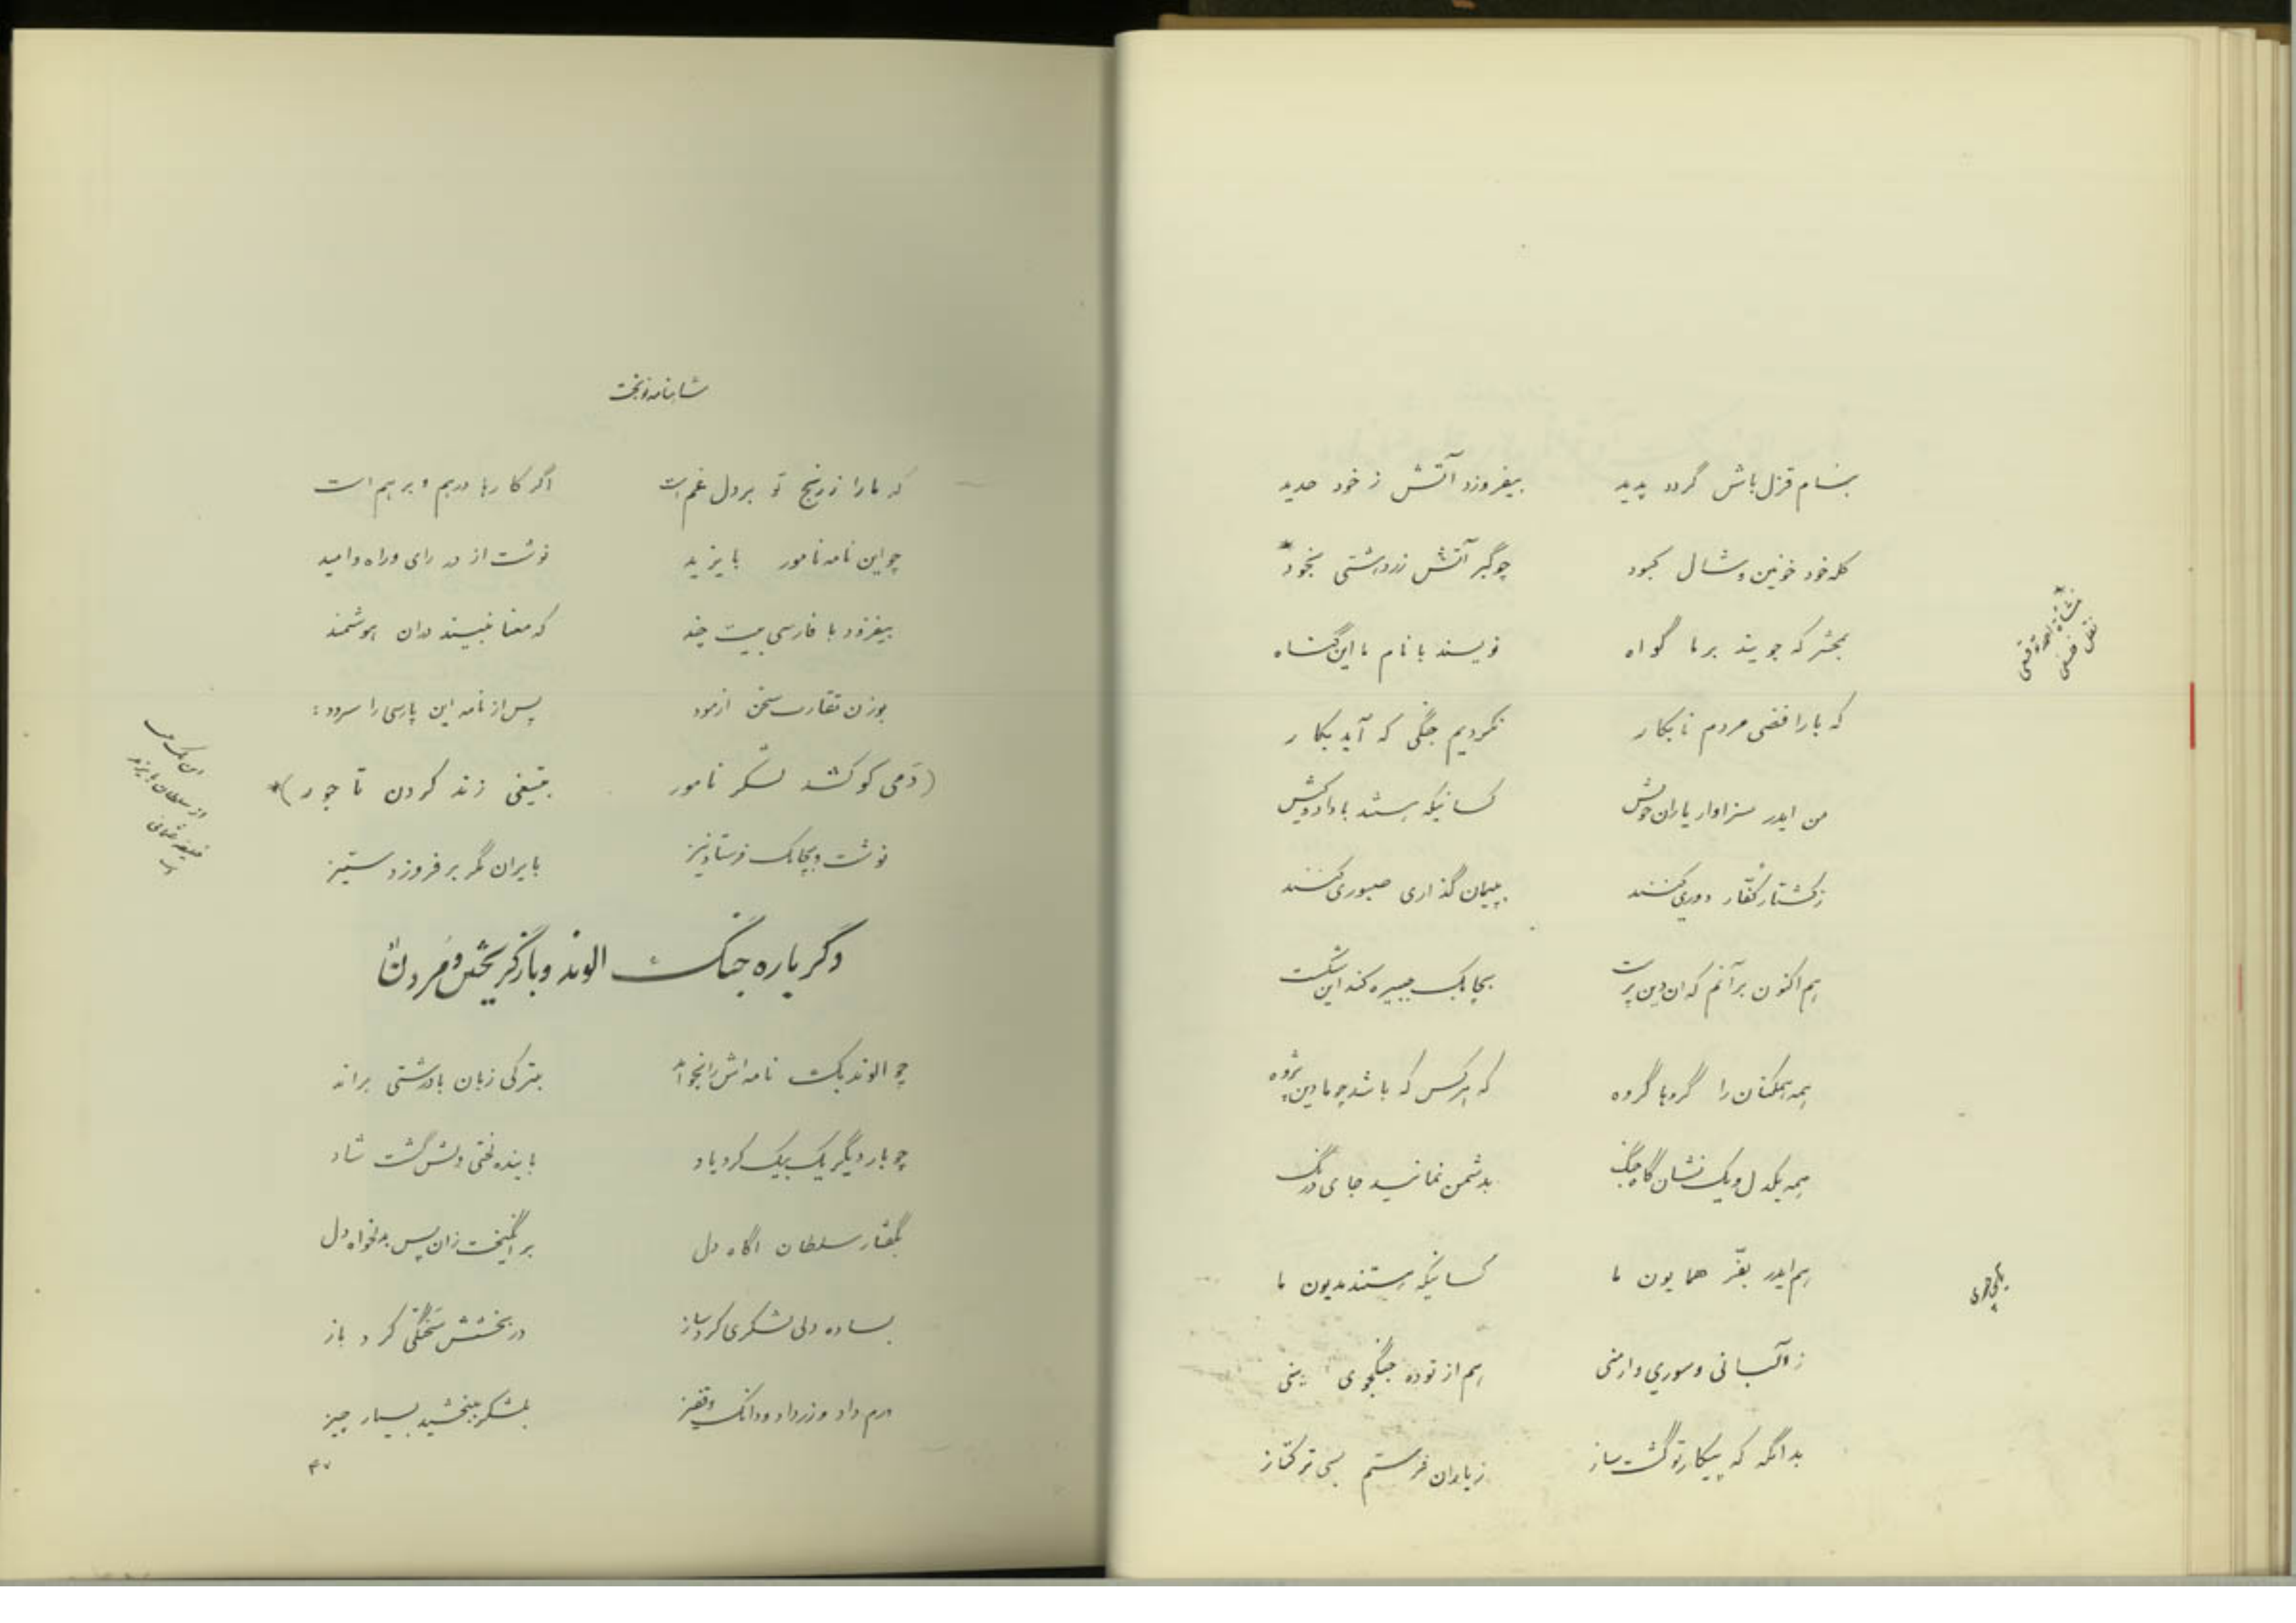 بنام قزل باش گردد پدید بیفروزد آتش ز خود حدید
کله خود خونین و شال کبود چو گبر آتش زردهشتی بخود *
بمحشر که جویند بر ما گواه نویسند با نام ما این گناه
که با رافضی مردم نابکار نکردیم جنگی که آید بکار
من ایدر سزاوار یاران خویش کسانیکه هستند با داد و کیش
ز کشتار کفّار دوری کنند بپیمان گذاری صبوری کنند
هم اکنون برآنم که ان دین پرست بچابک جبیره کند این شکست
همه همکنان را گروها گروه که هر کس که باشد چو ما دین پژوه
همه یکدل و یک نشان گاه جنگ بدشمن نمانید جای درنگ
هم ایدر بفّر همایون ما کسانیکه هستند مدیون ما
ز آلبانی و سوری و ارمنی هم از توده جنگجوی
بدانگه که پیکار تو گشت ساز ز یاران فرستم بسی ترکتاز
شاهنامه نوبخت
که ما را ز رنج تو بر دل غم است اگر کارها درهم و برهم است
چو این نامه نامور بایزید نوشت از در رای و راه و امید
بیفزود با فارسی بیت چند که معنا ببیند دران هوشمند
بوزن تقارب سخن ازمود پس از نامه این پارسی را سرود :
(دَمی کو کشد لشکر نامور بتیغی زند گردن تاجور)*
نوشت و بچابک فرستاد نیز بایران مگر برفروزد ستیز
این بیت
از سلطان بایزید
عثمانی
است
دگر باره جنگ الوند و باز گریختن و مُردن او
چو الوند بک نامه اش را بخواند بترکی زبان با درشتی براند
چو بار دیگر یک بیک کرد یاد باینده لختی دلش گشت شاد
بگفتار سلطان اگاه دل برانگیخت زان پس بدلخواه دل
بساده دلی لشکری کرد ساز در بخشش تنگی کرد باز
درم داد و زر داد و دانگ و قفیز بلشکر ببخشید بسیار چیز
۳۷